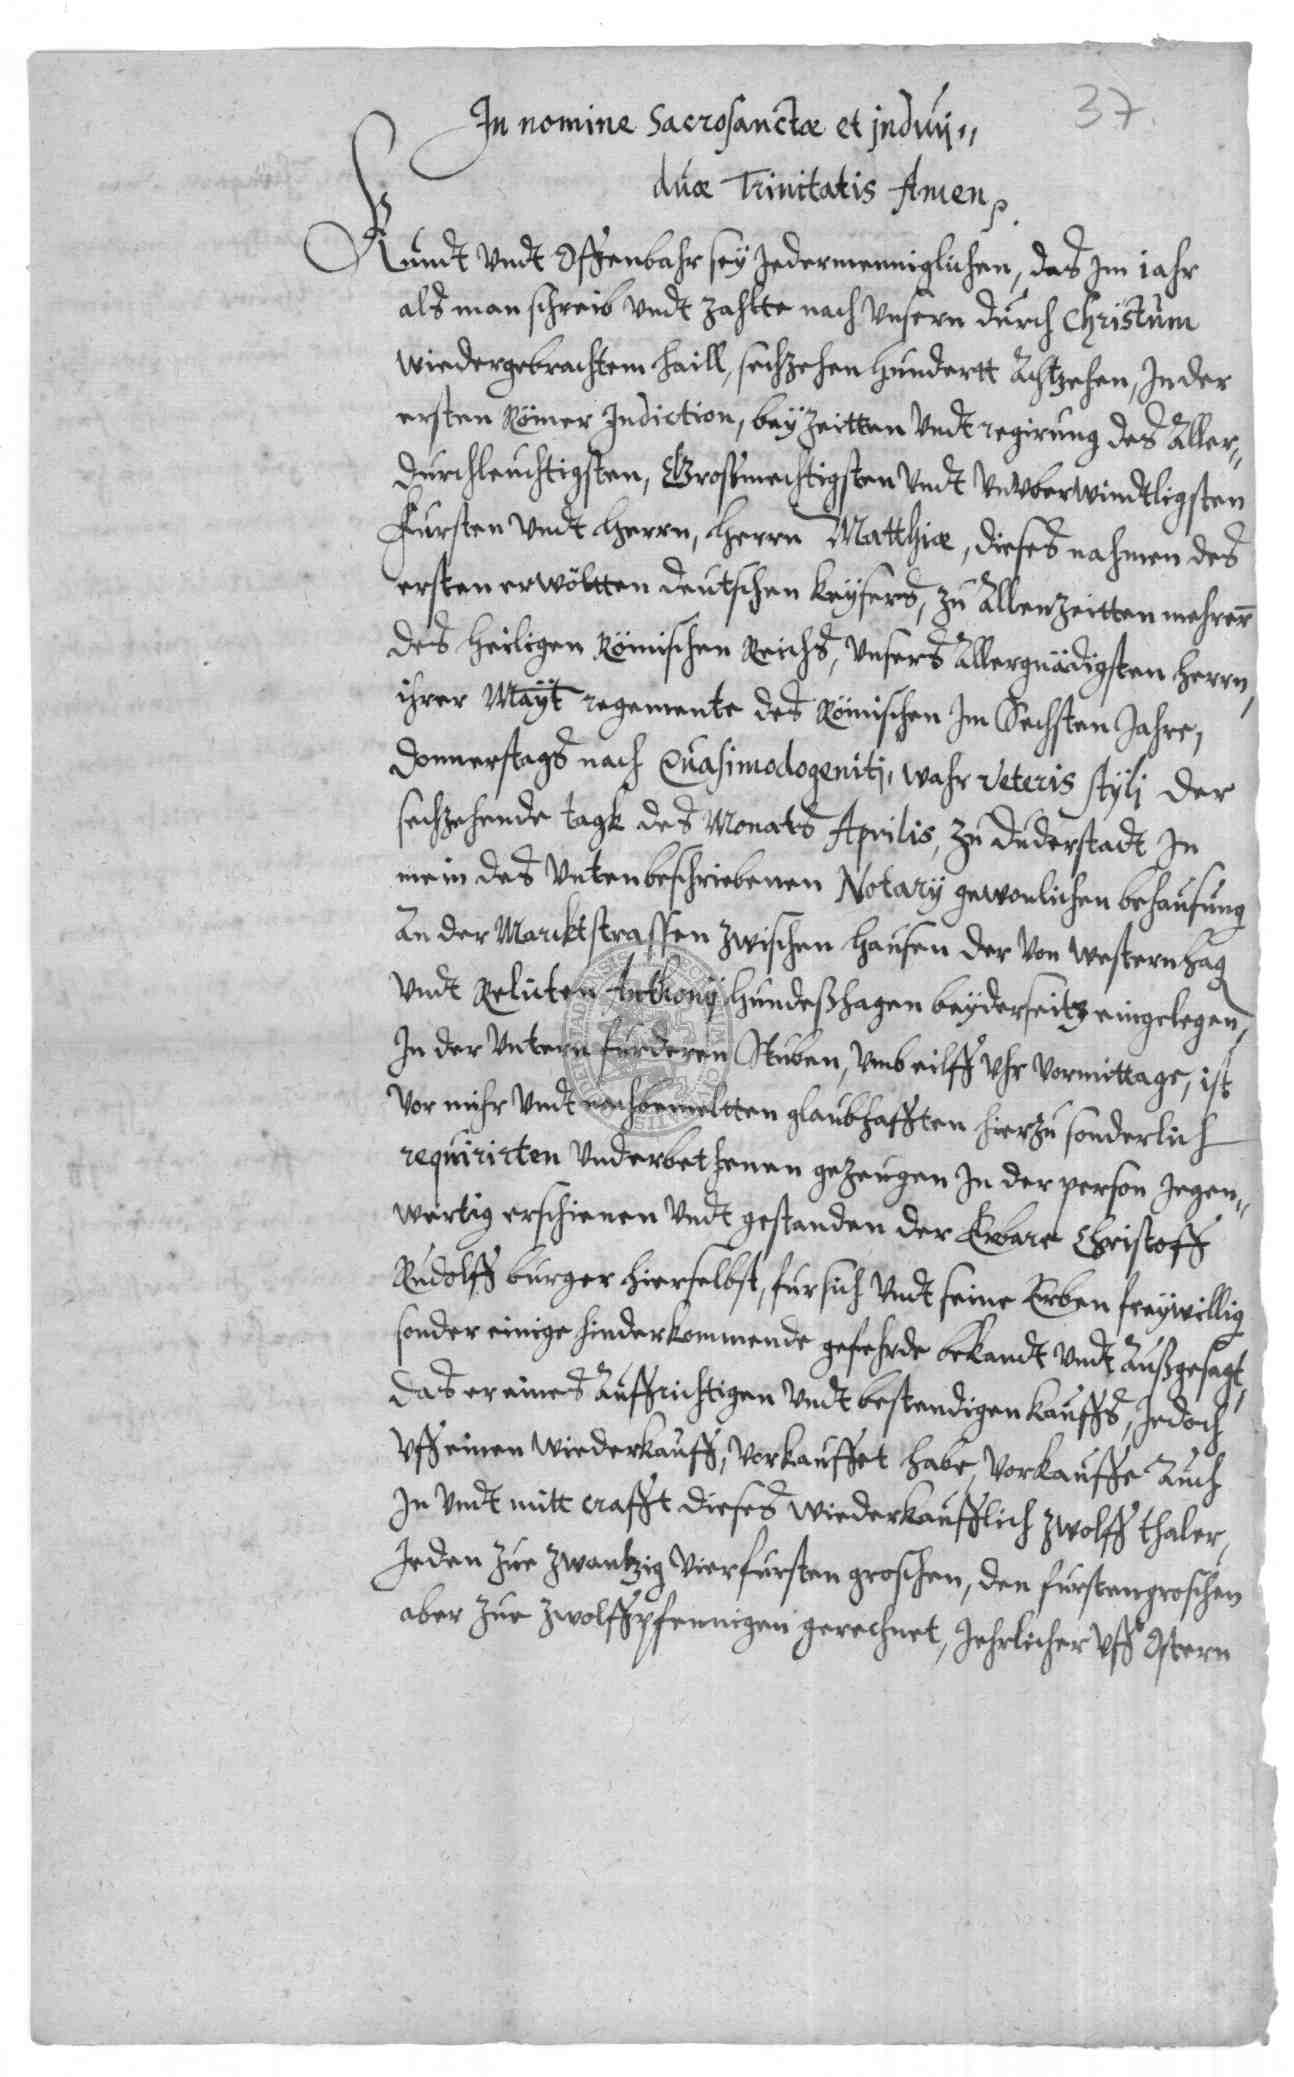 37.
In nomine Sacrosanctæ et jndivi⸗
duæ Trinitatis Amen
Kundt Undt Offenbahr seÿ Jedermenniglichen, das Jm iahr
als man schreib Undt zahlte nach Unsern durch Christum
wiedergebrachtem haill, sechzehen hundertt Achtzehen, Jn der
ersten Römer Jndiction, beÿ Zeitten Undt regirung des Aller⸗
durchleuchtigsten, Grossmechtigsten Undt Unvberwindtligsten
Fursten Undt Herrn, Herrn Matthiæ, dieses nahmen des
ersten erwöltten deutschen Keÿsers, zu Allen Zeitten mehrer
des Heiligen Römischen Reichs, Unsers Allergnädigsten Herrn,
ihrer Maÿt regemente des Römischen Jm Sechsten Jahre,
Donnerstags nach Quasimodogenitj, wahr Veteris stÿlj der
sechzehende tagk des Monats Aprilis, zu Duderstadt Jn
mein des Untenbeschriebenen Notarÿ gewonlichen behausung
An der Marcktstrassen zwischen Hausen der Von Westernhag
Undt Relicten Anthonÿ Hundeßhagen beÿderseitz eingelegen,
Jn der Untern furderen Stuben, Umb eilff Uhr Vormittage, ist
Vor mihr Undt nachbemeltten glaubhafften hierzu sonderlich
requirirten Underbethenen gezeugen Jn der person Jegen⸗
wertig erschienen Undt gestanden der Erbare Christoff
Rudolff burger hierselbst, fur sich Undt seine Erben freÿwillig
sonder einige hinderkommende gefehrde bekandt Undt Außgesagt,
das er eines Auffrichtigen Undt bestendigen Kauffs, Jedoch
Uff einen Wiederkauff, Vorkauffet habe, Vorkauffe Auch
Jn Undt mitt crafft dieses wiederkaufflich Zwolff thaler,
Jeden zue Zwantzig Vier fursten groschen, den furstengroschen
aber zue Zwolff pfennigen gerechnet, Jehrlicher Uff Ostern